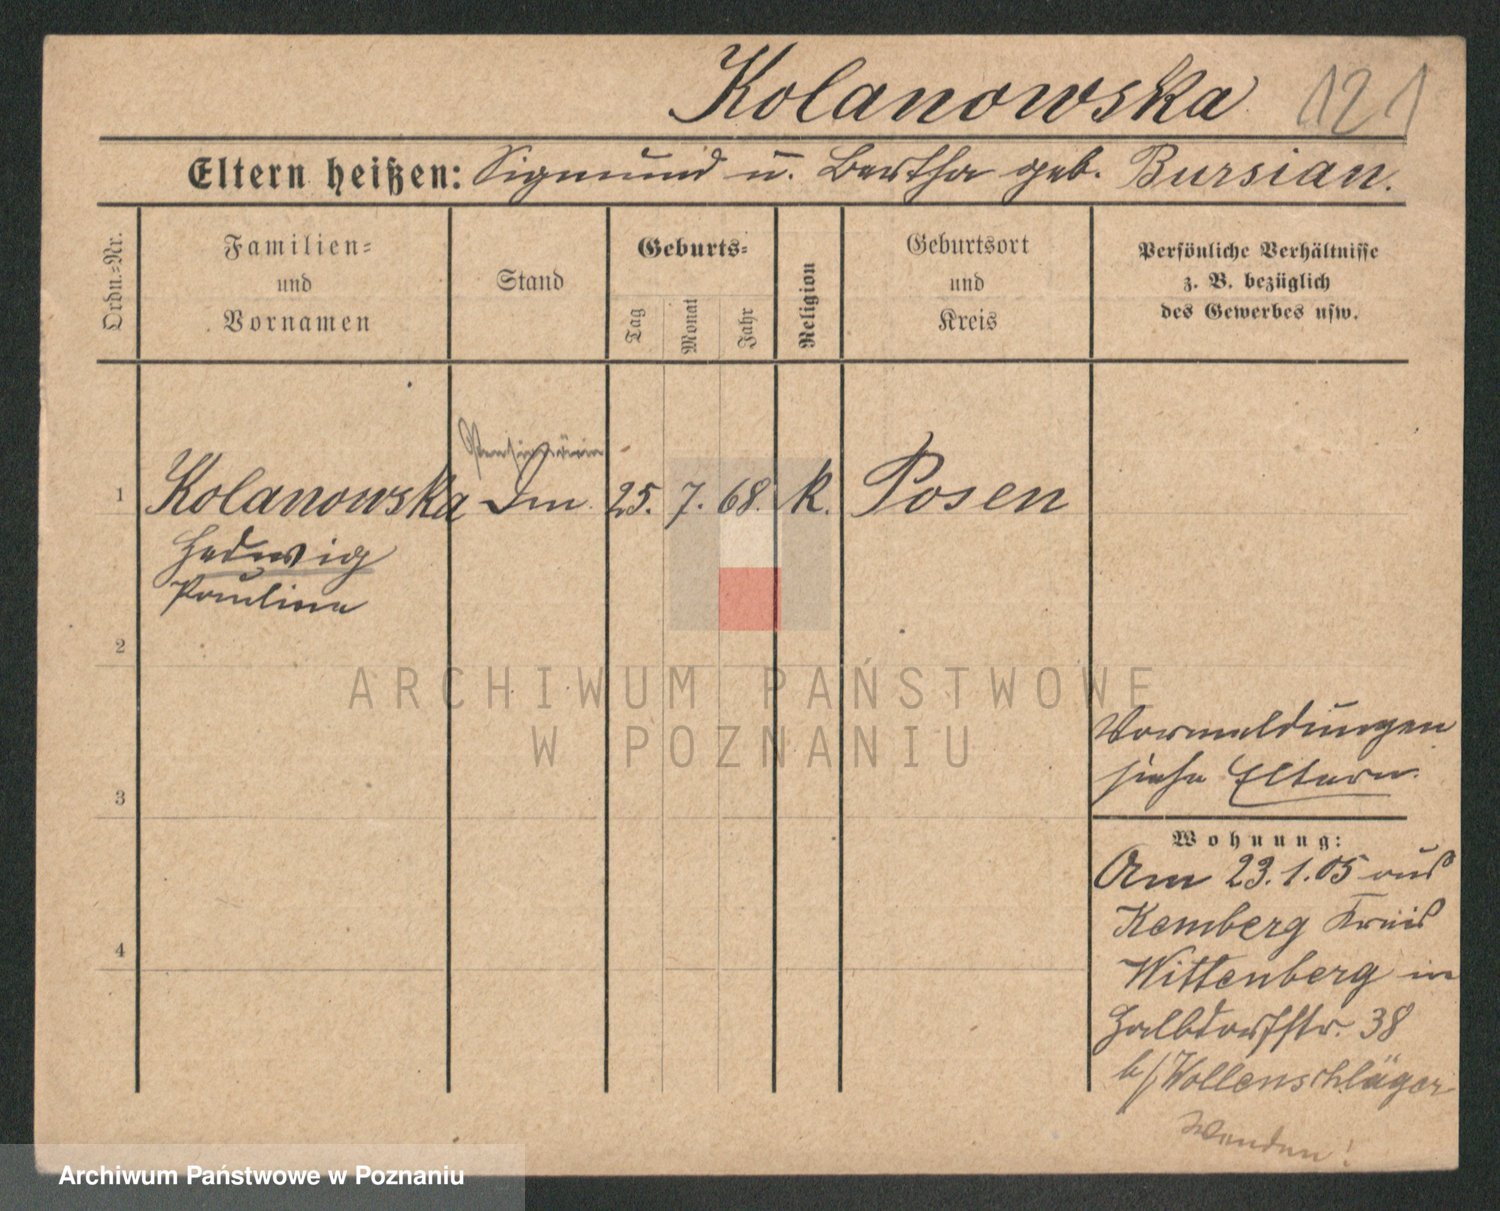 Kolanowska 121
Eltern heißen: Sigmund u. Bertha geb. Bursian.
Ordn.=Nr.
Familien=
und
Vornamen
Stand
Geburts=
Tag
Monat
Jahr
Religion
Geburtsort
und
Kreis
Persönliche Verhältnisse
z. B. bezüglich
des Gewerbes usw.
1 Kolanowska 25. 7. 68. K. Posen
Hedwig
Pauline
2
3
4
Vormeldungen
siehe Eltern.
Wohnung:
Am 23.1.05 aus
Kemberg Kreis
Wittenberg in
Halbdorfstr. 38
b/Wollenschläger
Wenden!
ARCHIWUM PAŃSTWOWE
W POZNANIU
Archiwum Państwowe w Poznaniu